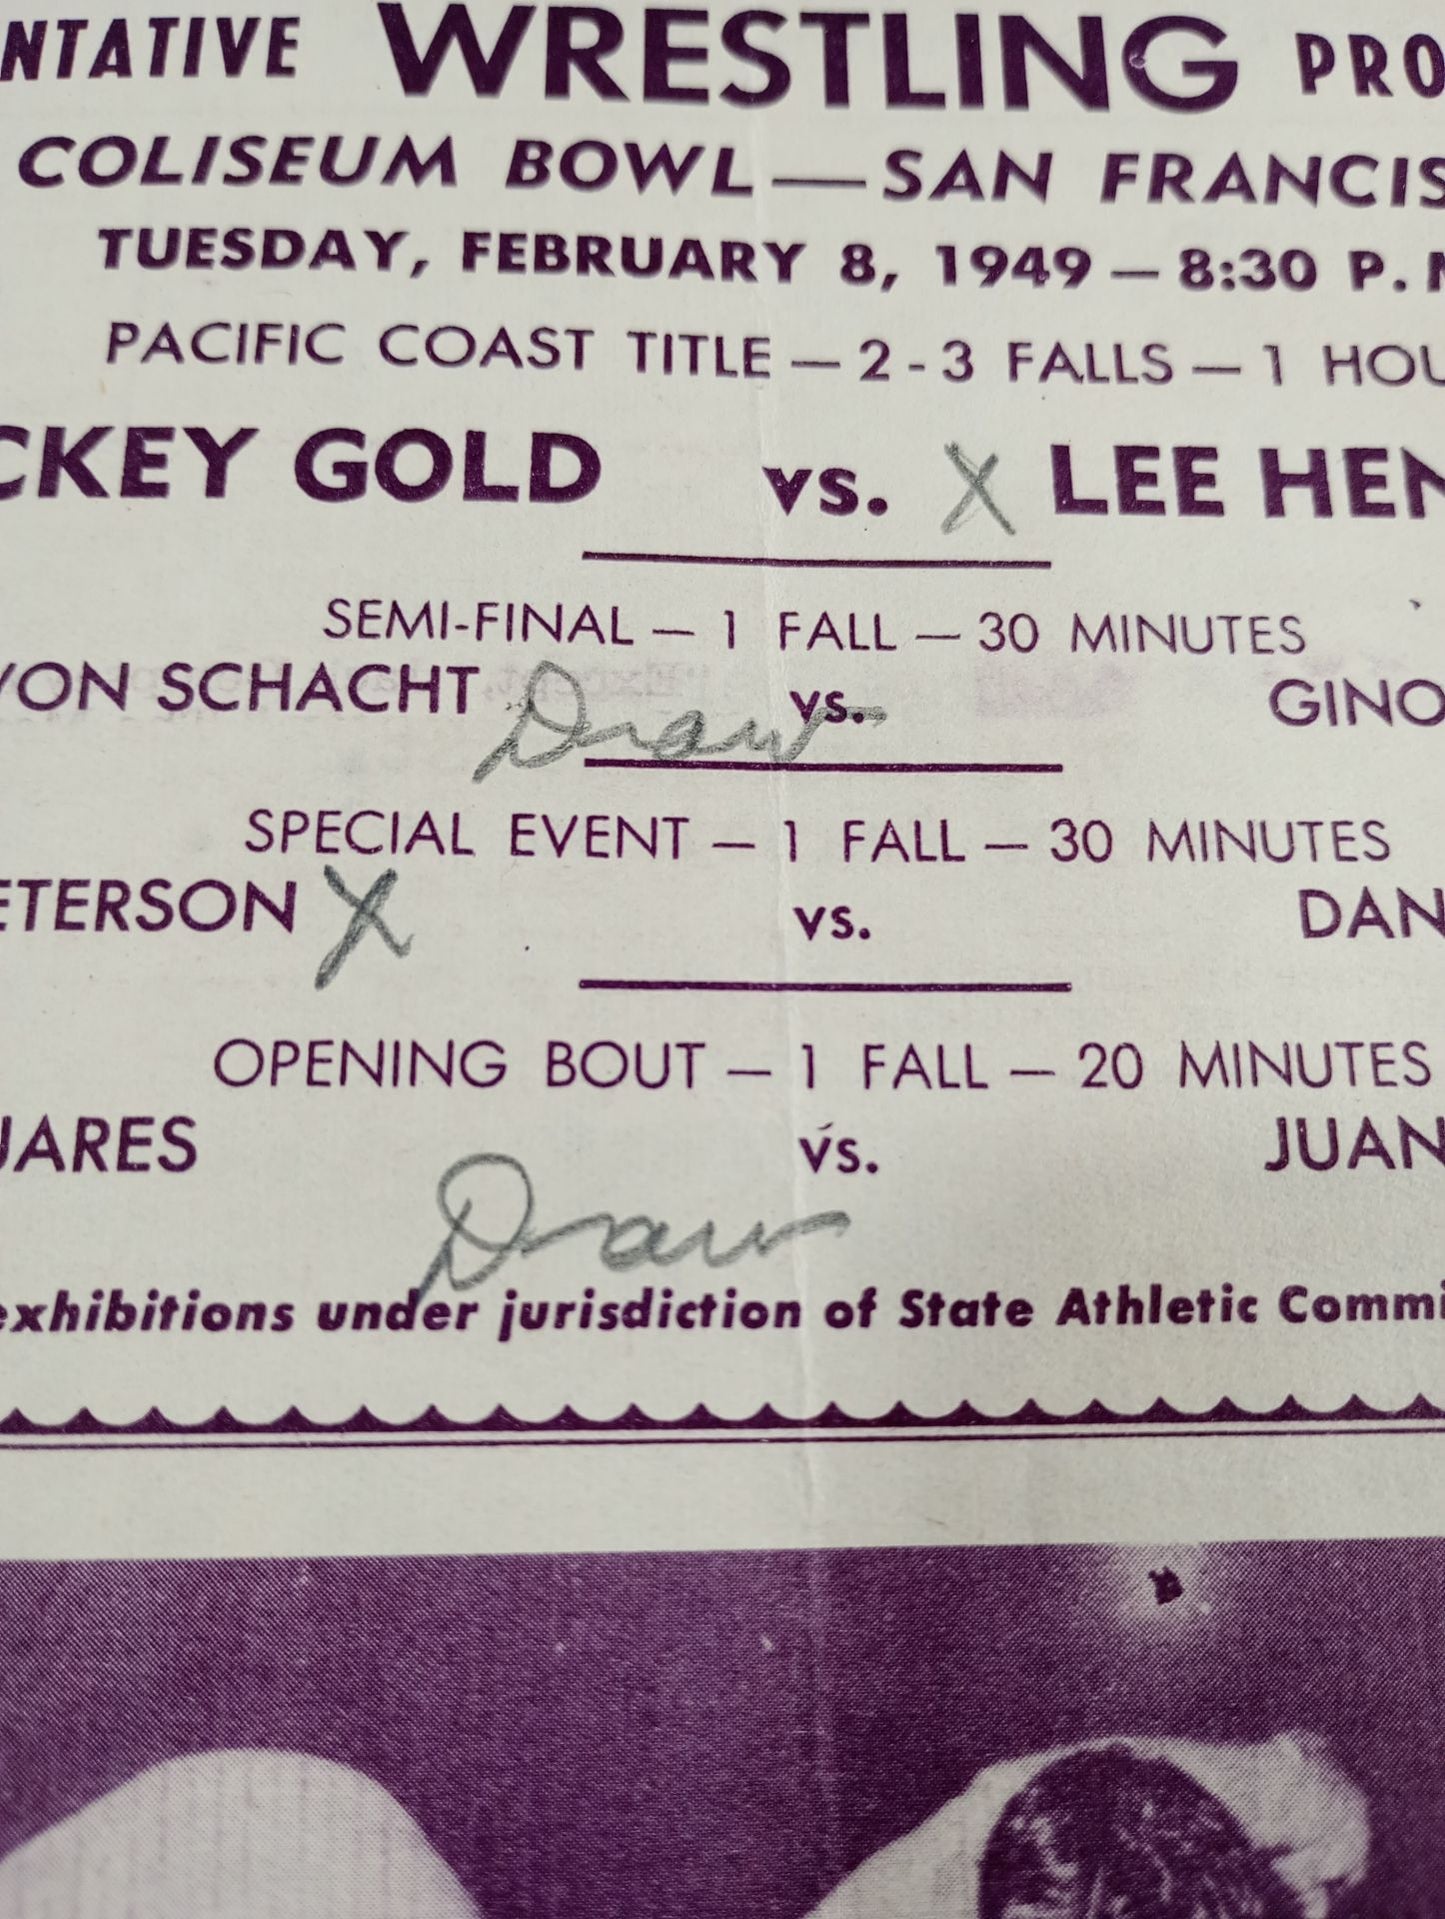 NTATIVE WRESTLING PRO
COLISEUM BOWL — SAN FRANCIS
TUESDAY, FEBRUARY 8, 1949 — 8:30 P. M
PACIFIC COAST TITLE — 2 - 3 FALLS — 1 HOU
CKEY GOLD vs. X LEE HEN
SEMI-FINAL — 1 FALL — 30 MINUTES
VON SCHACHT Draw vs. GINO
SPECIAL EVENT — 1 FALL — 30 MINUTES
ETERSON X vs. DAN
OPENING BOUT — 1 FALL — 20 MINUTES
UARES vs. JUAN
Draw
exhibitions under jurisdiction of State Athletic Commi